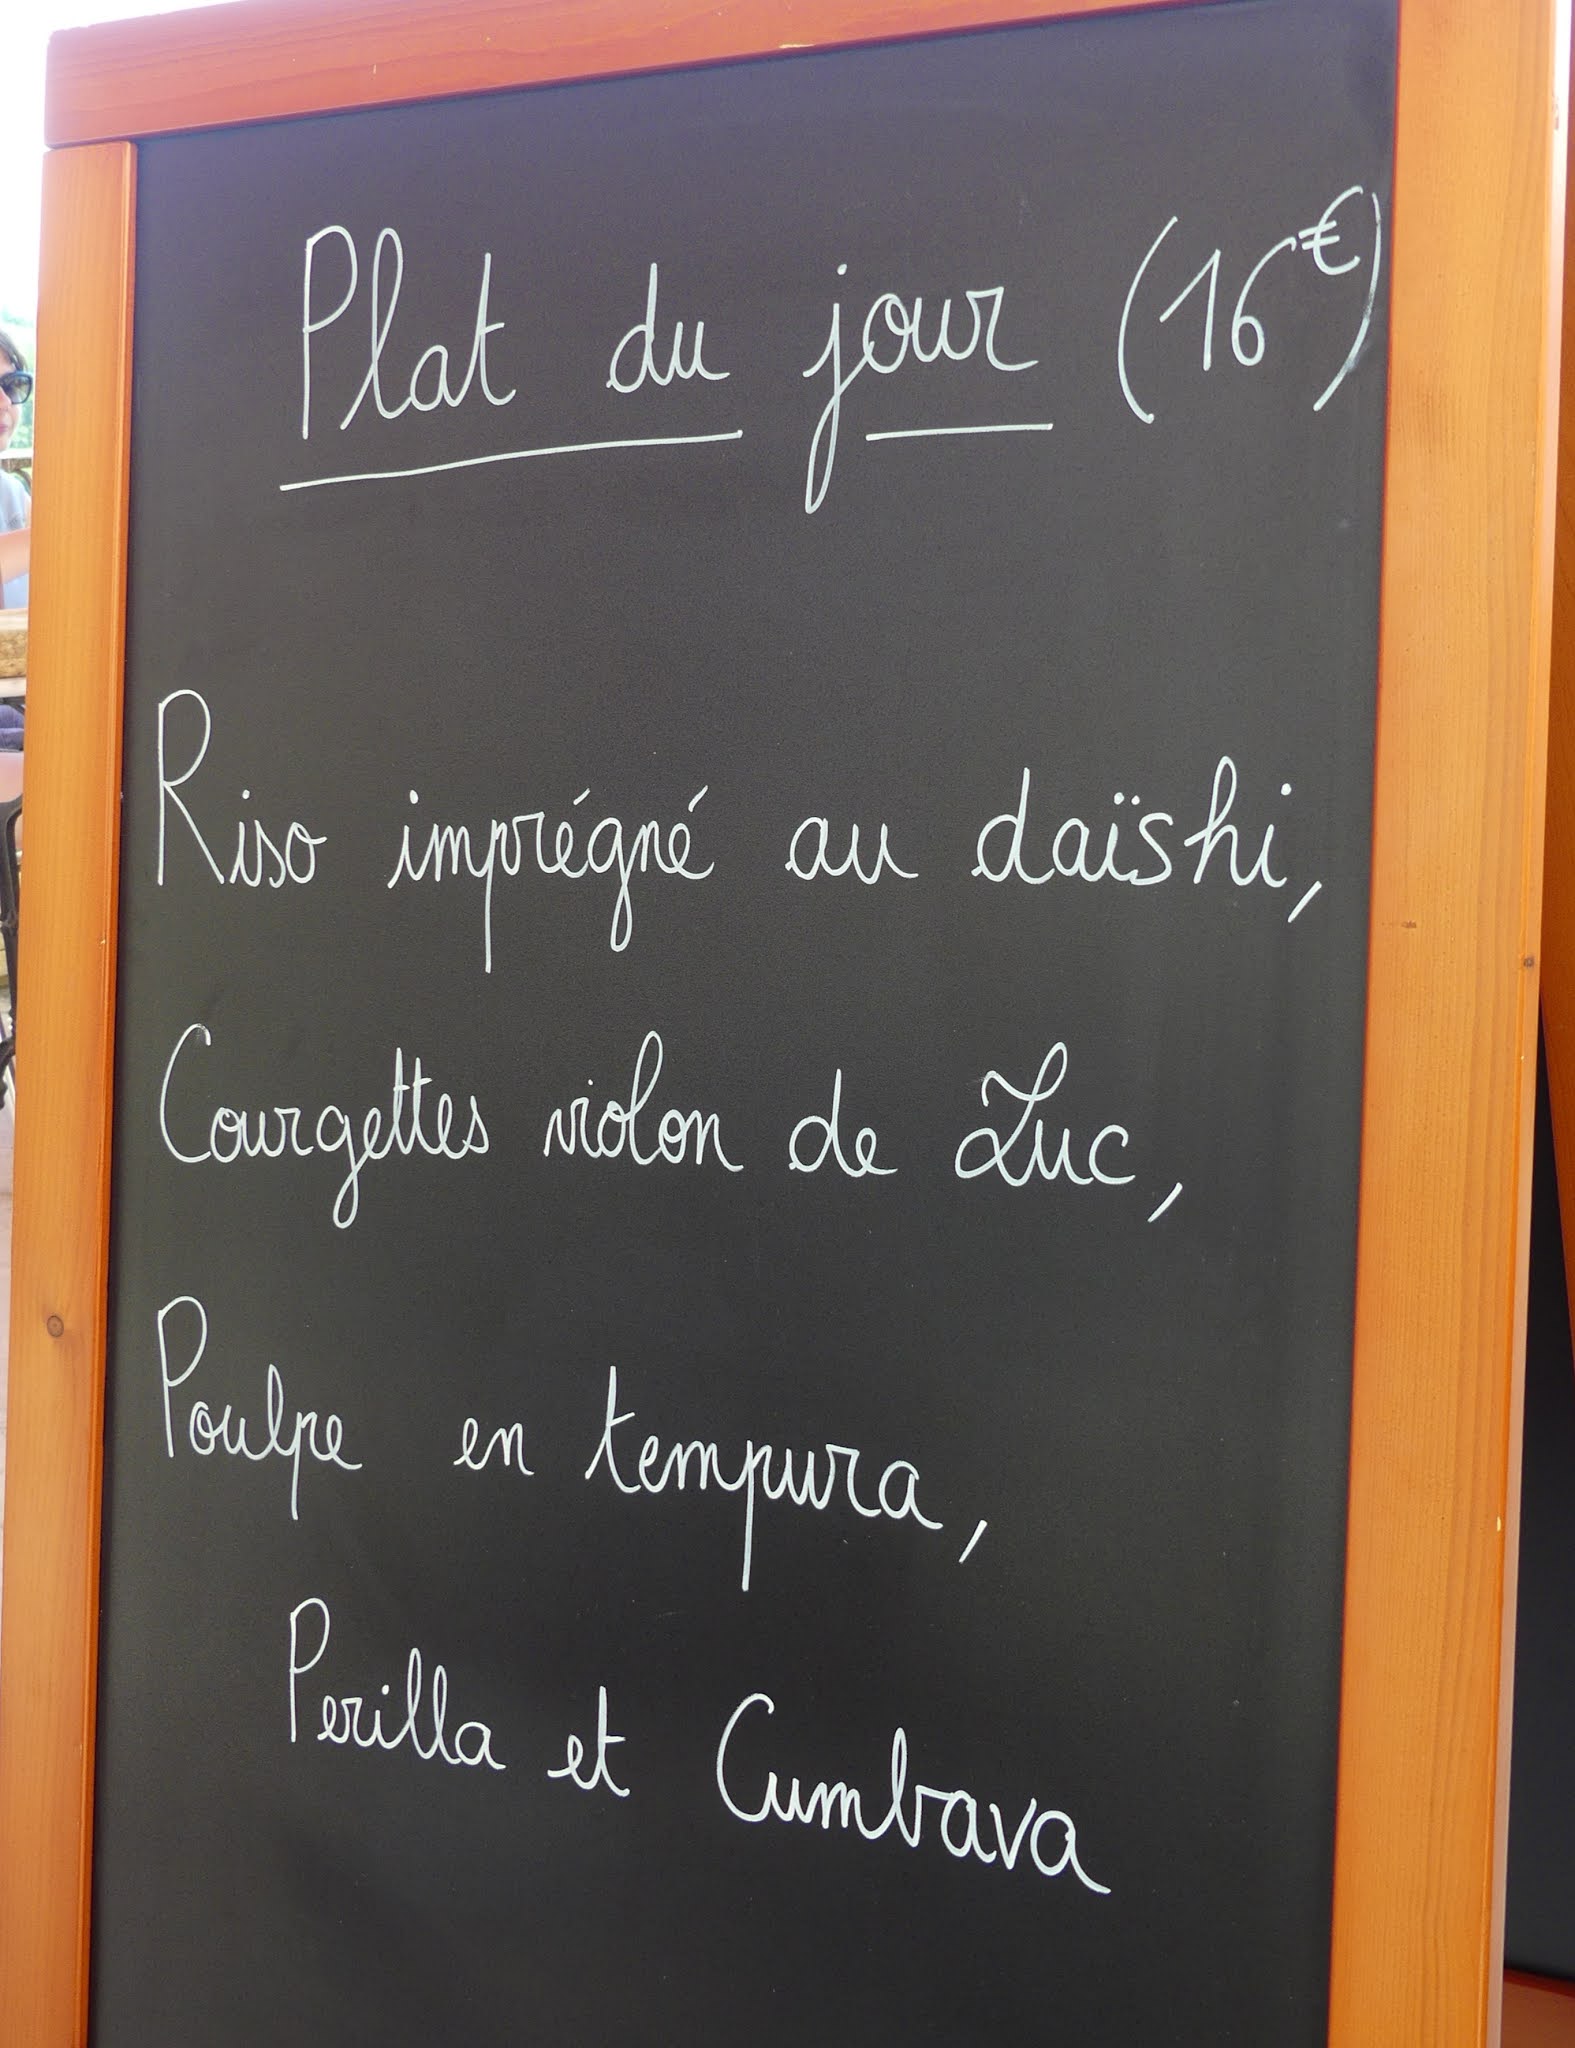 Plat du jour (16€)
Riso imprégné au daïshi,
Courgettes violon de Luc,
Poulpe en tempura,
Perilla et Cumbava